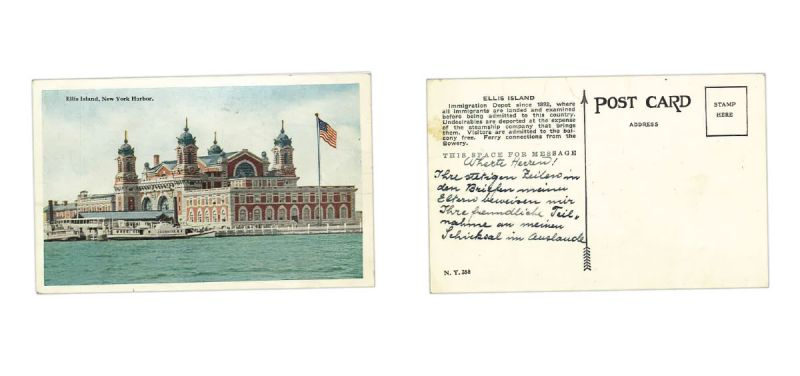 Ellis Island, New York Harbor.
ELLIS ISLAND
Immigration Depot since 1892, where
all immigrants are landed and examined
before being admitted to this country.
Undesirables are deported at the expense
of the steamship company that brings
them. Visitors are admitted to the bal-
cony free. Ferry connections from the
Bowery.
THIS SPACE FOR MESSAGE
Werte Herren!
Ihre stetigen Zeilen in
den Briefen meiner
Eltern beweisen mir
Ihre freundliche Teil-
nahme an meinen
Schicksal im Auslande
N. Y. 258
POST CARD
ADDRESS
STAMP
HERE